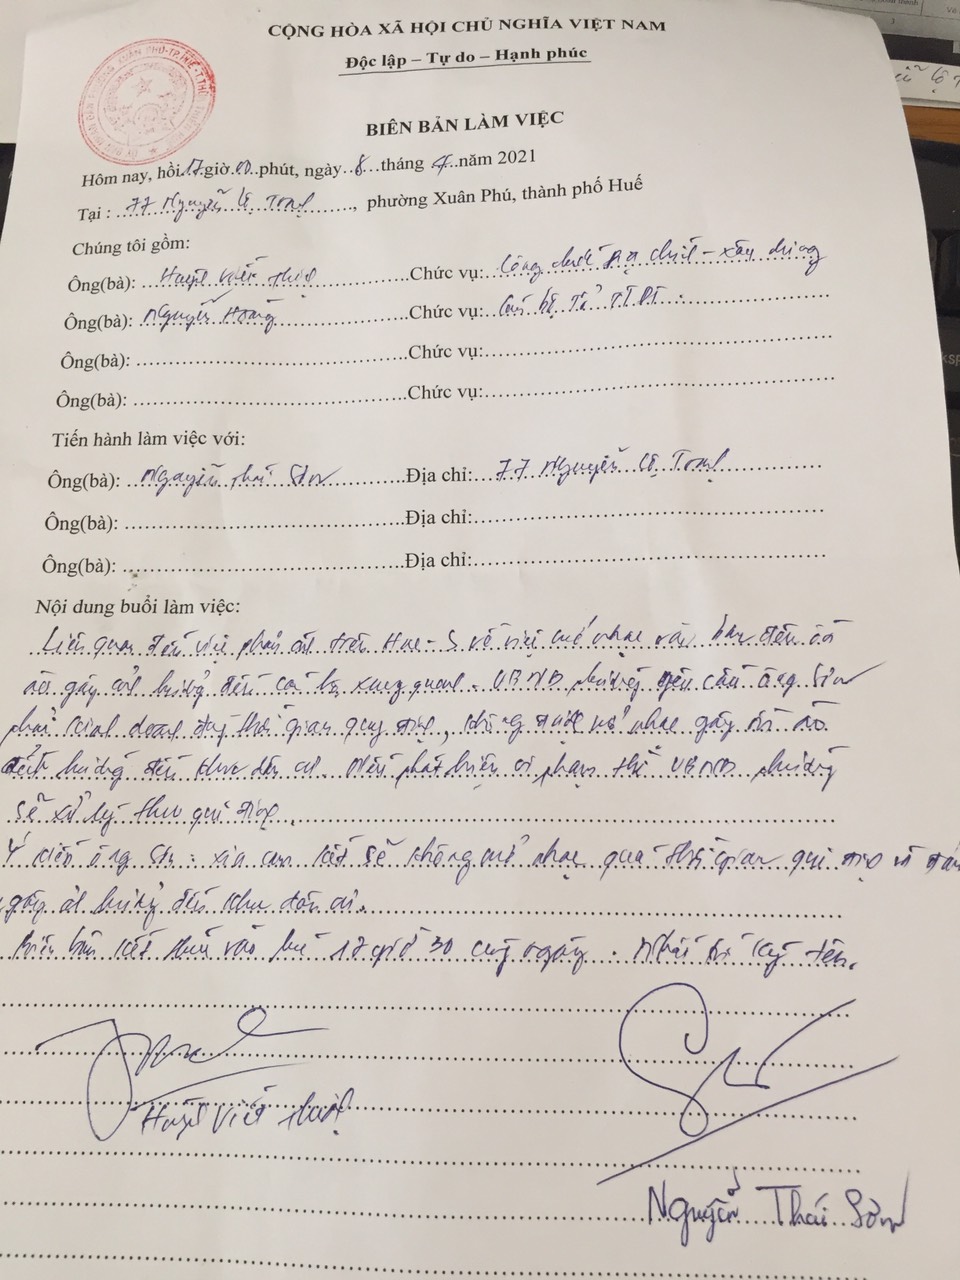 CỘNG HÒA XÃ HỘI CHỦ NGHĨA VIỆT NAM
Độc lập – Tự do – Hạnh phúc
BIÊN BẢN LÀM VIỆC
Hôm nay, hồi 17 giờ 00 phút, ngày 8 tháng 4 năm 2021
Tại : 77 Nguyễn Lộ Trạch, phường Xuân Phú, thành phố Huế
Chúng tôi gồm:
Ông(bà): Huỳnh Viết Chức vụ: Công chức địa chính - xây dựng
Ông(bà): Nguyễn Hoàng Chức vụ: Cán bộ Tổ
Ông(bà): Chức vụ:
Ông(bà): Chức vụ:
Tiến hành làm việc với:
Ông(bà): Nguyễn Thái Sơn Địa chỉ: 77 Nguyễn Lộ Trạch
Ông(bà): Địa chỉ:
Ông(bà): Địa chỉ:
Nội dung buổi làm việc:
Liên quan đến việc phản ánh trên Hue-S về việc mở nhạc
gây ảnh hưởng đến xung quanh. UBND phường yêu cầu ông Sơn
phải kinh doanh đúng thời gian quy định, không được mở nhạc gây ồn ào
ảnh hưởng đến khu dân cư. Nếu phát hiện vi phạm thì UBND phường
sẽ xử lý theo qui định.
Ý kiến ông Sơn: xin cam kết sẽ không mở nhạc quá thời gian qui định
gây ảnh hưởng đến khu dân cư.
Biên bản kết thúc vào lúc 17 giờ 30 cùng ngày. Nhất trí ký tên.
Huỳnh Viết
Nguyễn Thái Sơn